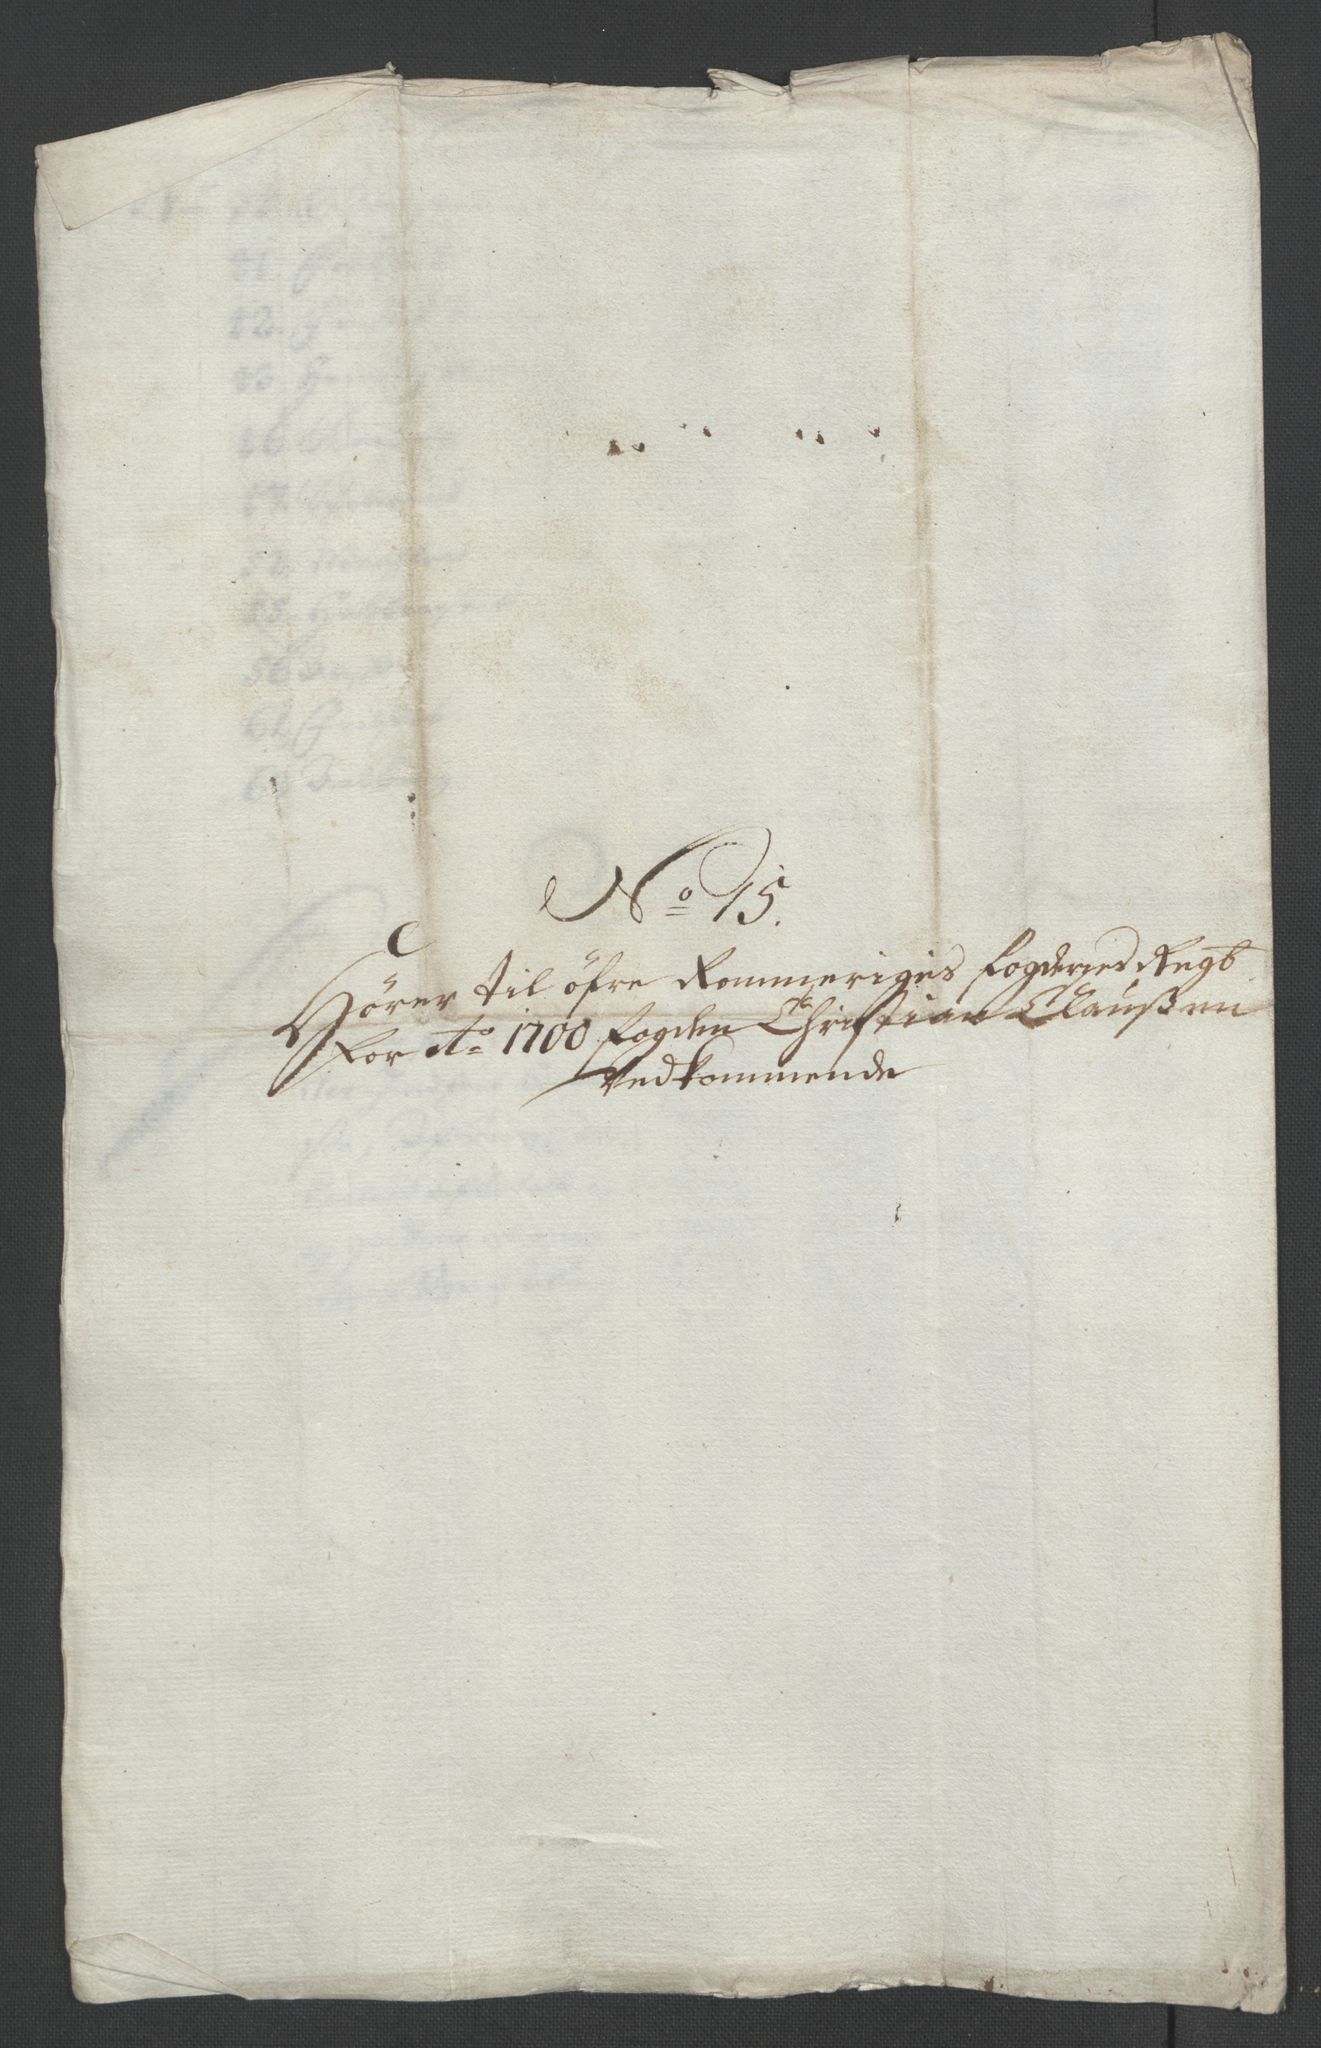 No 15.
Hörer til öfre Rommeriges fogderies Regsb
for Ao 1700 fogden Christian Claußen
Vedkommende